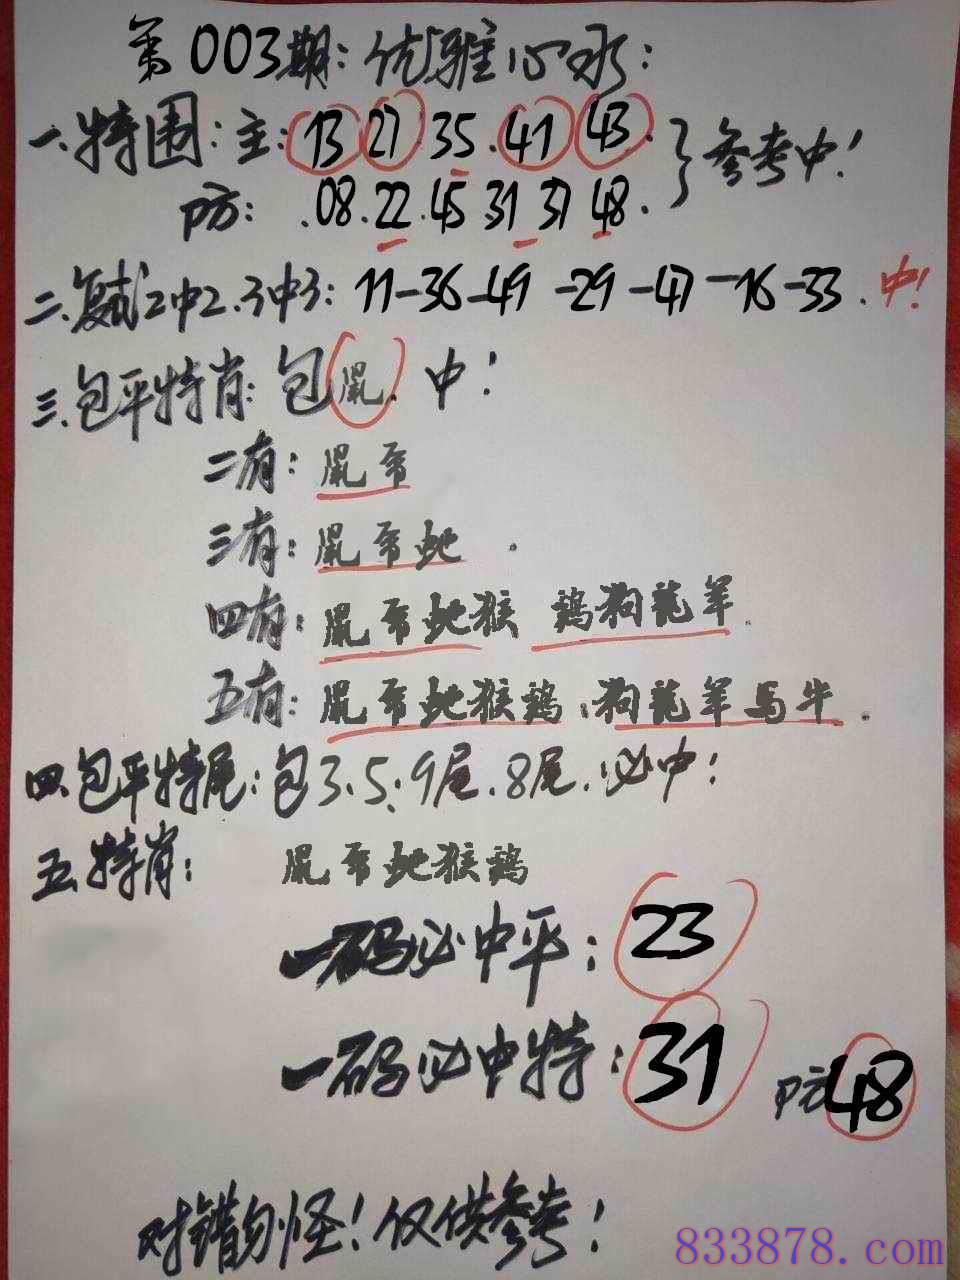 第003期:优雅心水:
一.特围:主:13 27 35.41 43.
参考中!
防:.08.22.45 31 37 48.
二.复式2中2.3中3:11-36-49-29-47-16-33.中!
三.包平特肖:包鼠.中!
二有:鼠兔
三有:鼠兔蛇.
四有:鼠兔蛇猴 鸡狗龙羊.
五有:鼠兔蛇猴鸡.狗龙羊马牛.
四.包平特尾:包3.5.9尾.8尾.必中!
五.特肖: 鼠兔蛇猴鸡
一码必中平:23
一码必中特:31 防48
对错勿怪!仅供参考!
833878.com